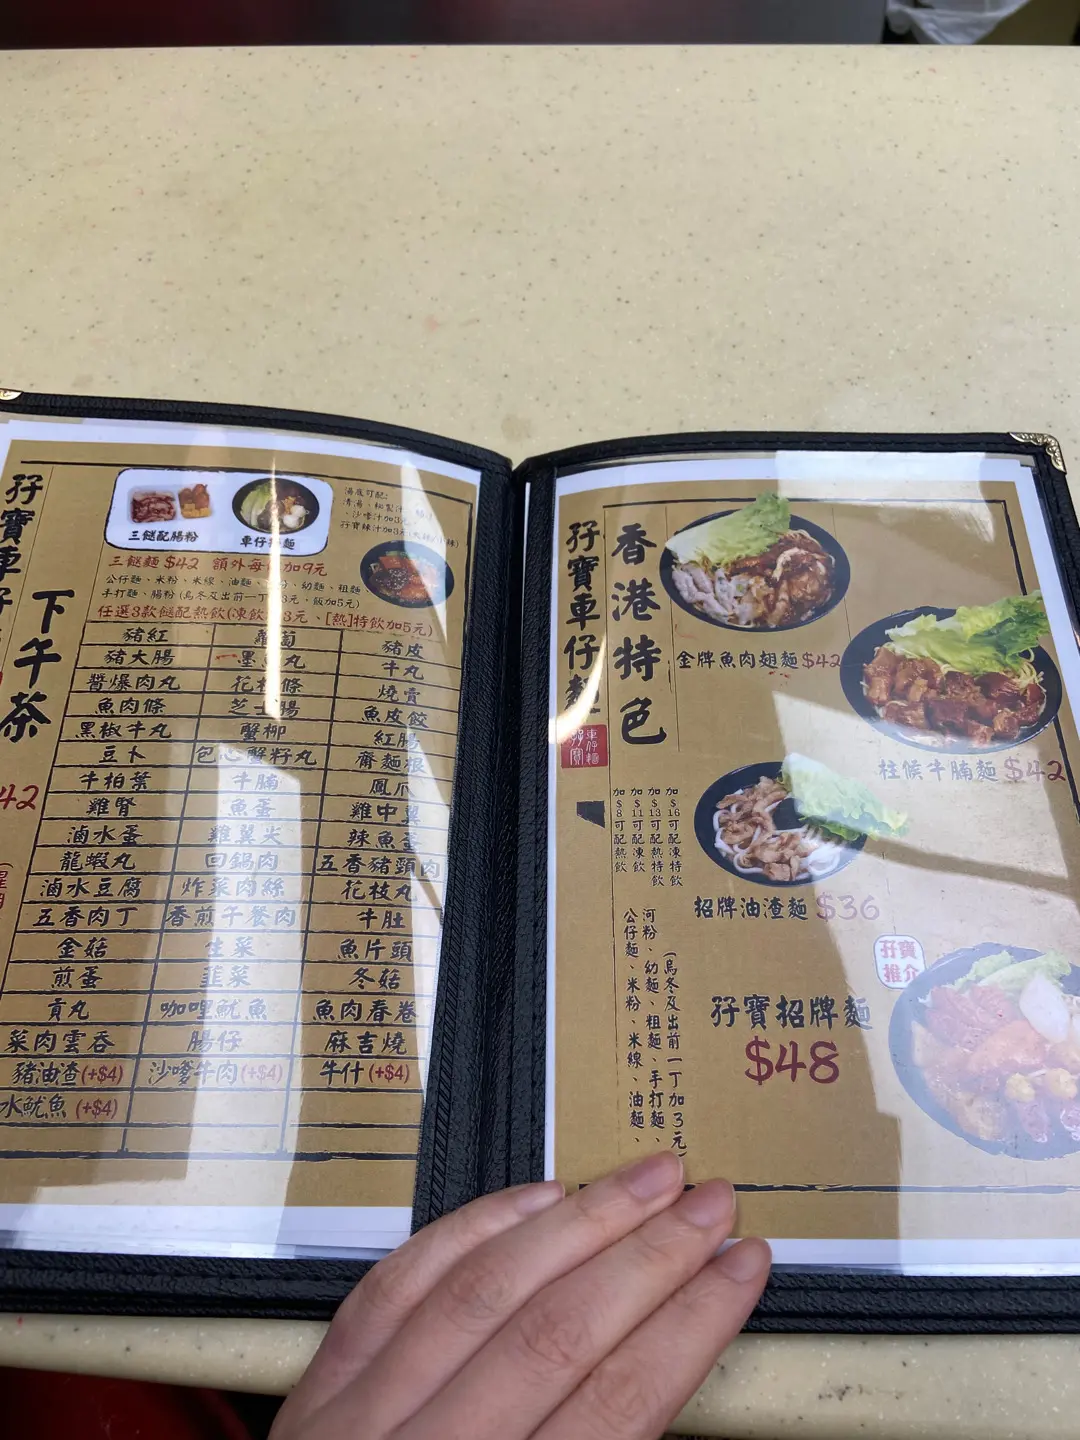 孖寶車仔
下午茶
三餸配腸粉
車仔
麵
湯底可配:
清湯、
、沙嗲汁加3元、
三餸麵 $42 額外每
加9元
公仔麵、米粉、米線、油麵、
粉、幼麵、粗麵、
手打麵、腸粉(烏冬及出前一丁
3元、飯加5元)
任選3款餸配熱飲(凍飲
3元、[熱]特飲加5元)
豬紅 蘿蔔 豬皮
豬大腸 墨
丸 牛丸
醬爆肉丸 花枝條 燒賣
魚肉條 芝士腸 魚皮餃
黑椒牛丸 蟹柳 紅腸
豆卜 包心蟹籽丸 齋麵根
牛柏葉 牛腩 鳳爪
雞腎 魚蛋 雞中翼
滷水蛋 雞翼尖 辣魚蛋
龍蝦丸 回鍋肉 五香豬頸肉
滷水豆腐 炸菜肉絲 花枝丸
五香肉丁 香煎午餐肉 牛肚
金菇 生菜 魚片頭
煎蛋 韮菜 冬菇
貢丸 咖哩魷魚 魚肉春卷
菜肉雲吞 腸仔 麻吉燒
豬油渣(+$4) 沙嗲牛肉(+$4) 牛什(+$4)
水魷魚 (+$4)
孖寶車仔麵
孖寶
車仔麵
香港特色
金牌魚肉翅麵$42
柱侯牛腩麵 $42
招牌油渣麵 $36
孖寶
推介
孖寶招牌麵
$48
加$16可配凍特飲
加$13可配熱特飲
加$11可配凍飲
加$8可配熱飲
(烏冬及出前一丁加3元)
河粉、幼麵、粗麵、手打麵、
公仔麵、米粉、米線、油麵、